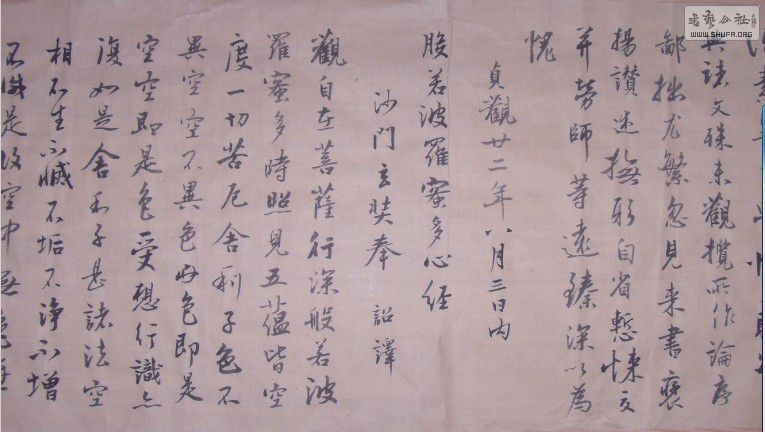 書藝公社
WWW.SHUFA.ORG
典諸文殊未觀攬所作論序
鄙拙尤繁忽見来書褒
揚讃述撫躬自省慙悚交
并勞師等遠臻深以為
愧
貞觀廿二年八月三日内
般若波羅蜜多心經
沙門玄奘奉 詔譯
觀自在菩薩行深般若波
羅蜜多時照見五蘊皆空
度一切苦厄舍利子色不
異空空不異色色即是
空空即是色受想行識亦
復如是舍利子是諸法空
相不生不滅不垢不淨不增
不減是故空中無色無